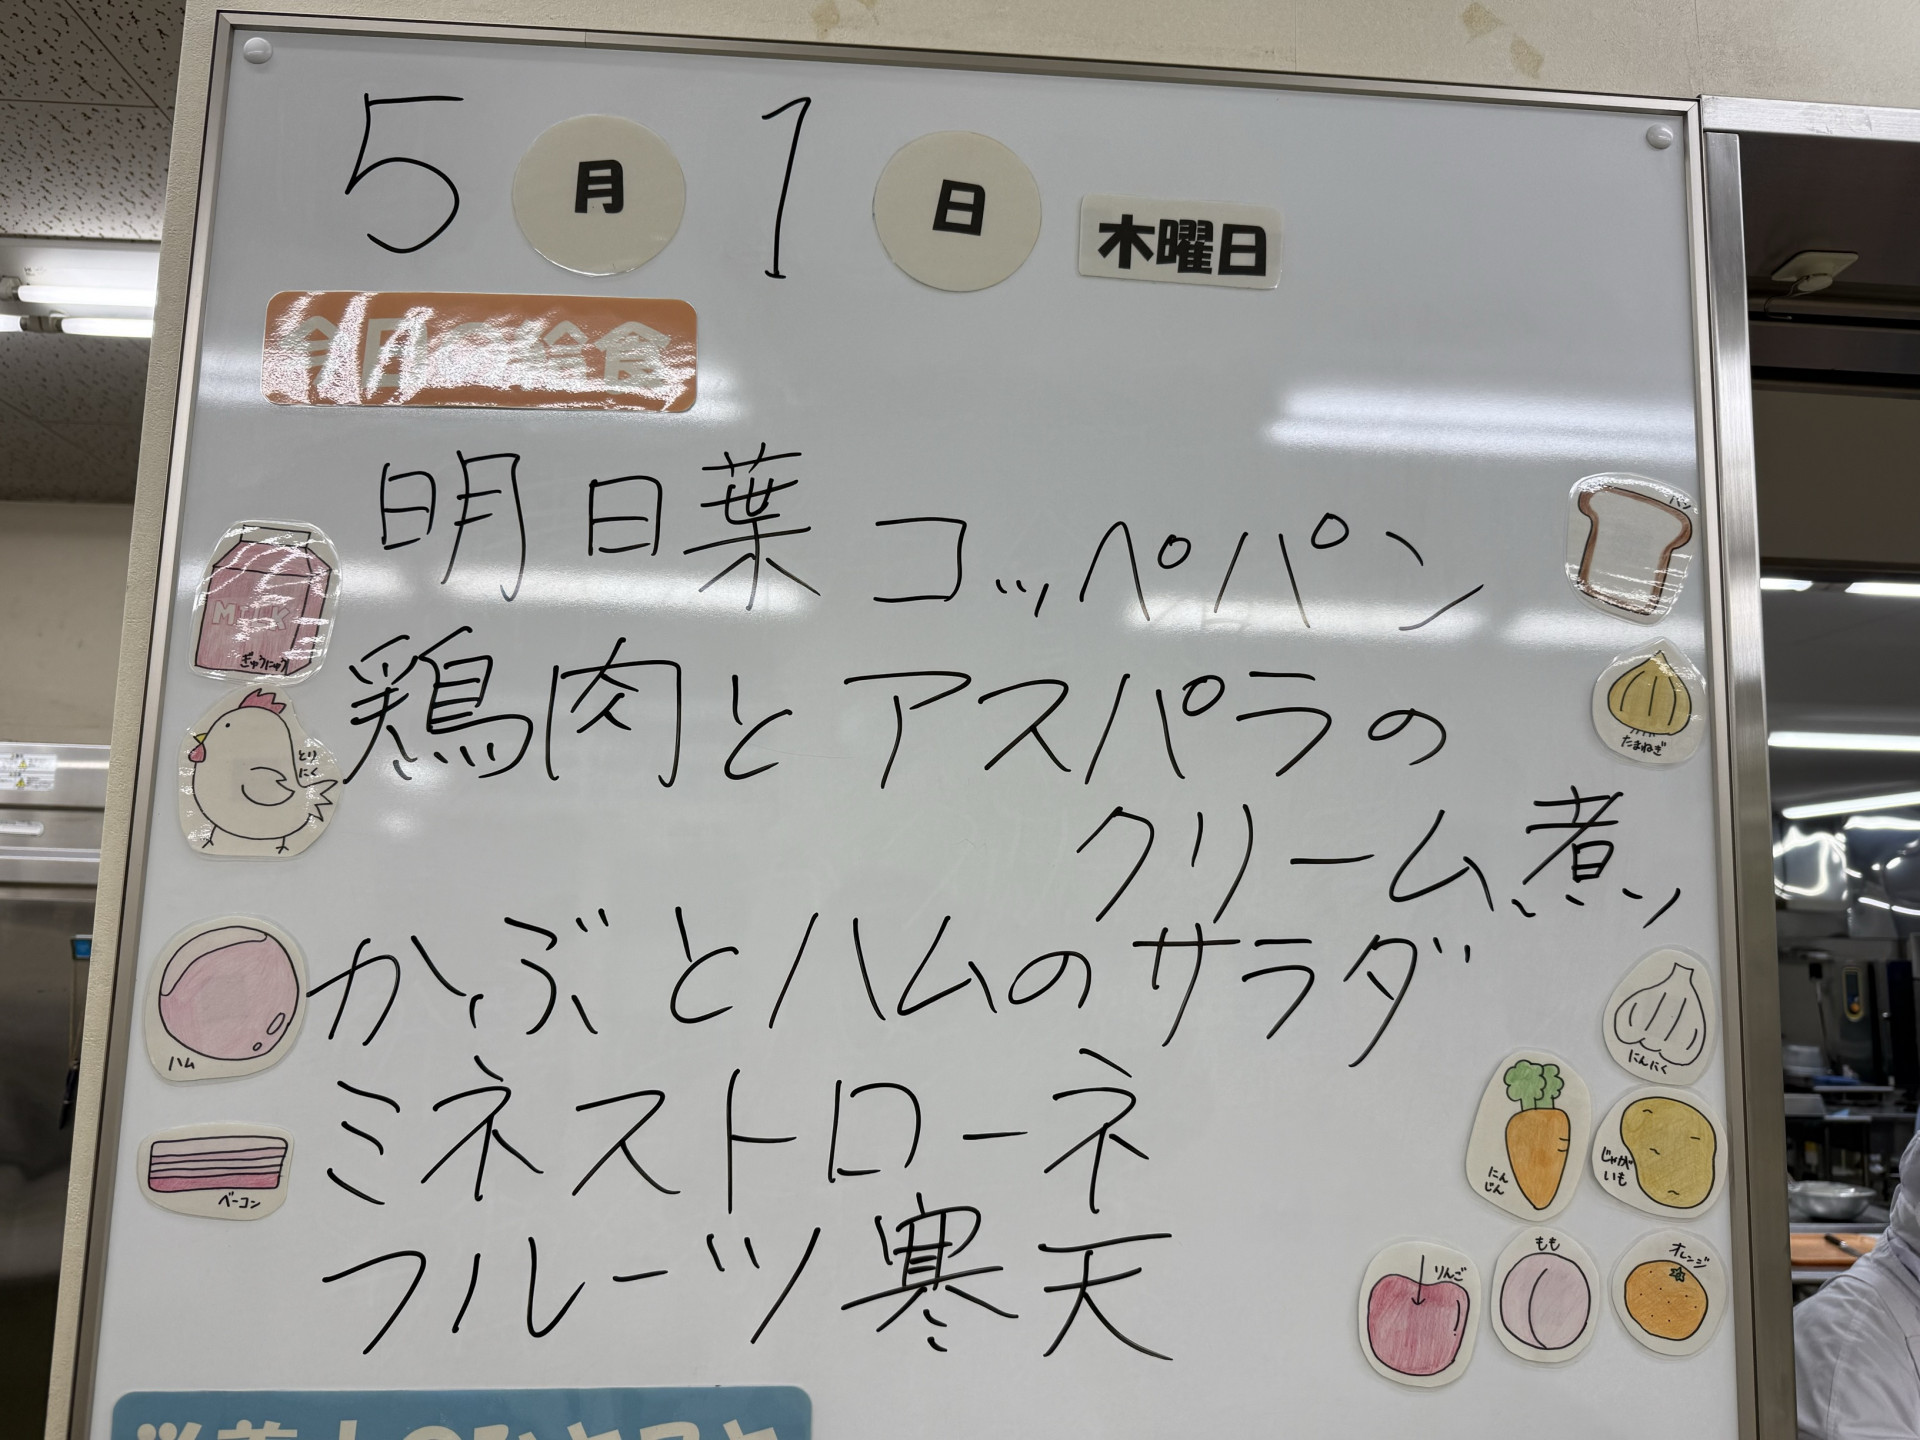 5月1日 木曜日
今日の給食
明日葉コッペパン
鶏肉とアスパラの
クリーム煮
かぶとハムのサラダ
ミネストローネ
フルーツ寒天
MILK
ぎゅうにゅう
とりにく
ハム
ベーコン
パン
たまねぎ
にんにく
にんじん
じゃがいも
りんご
もも
オレンジ